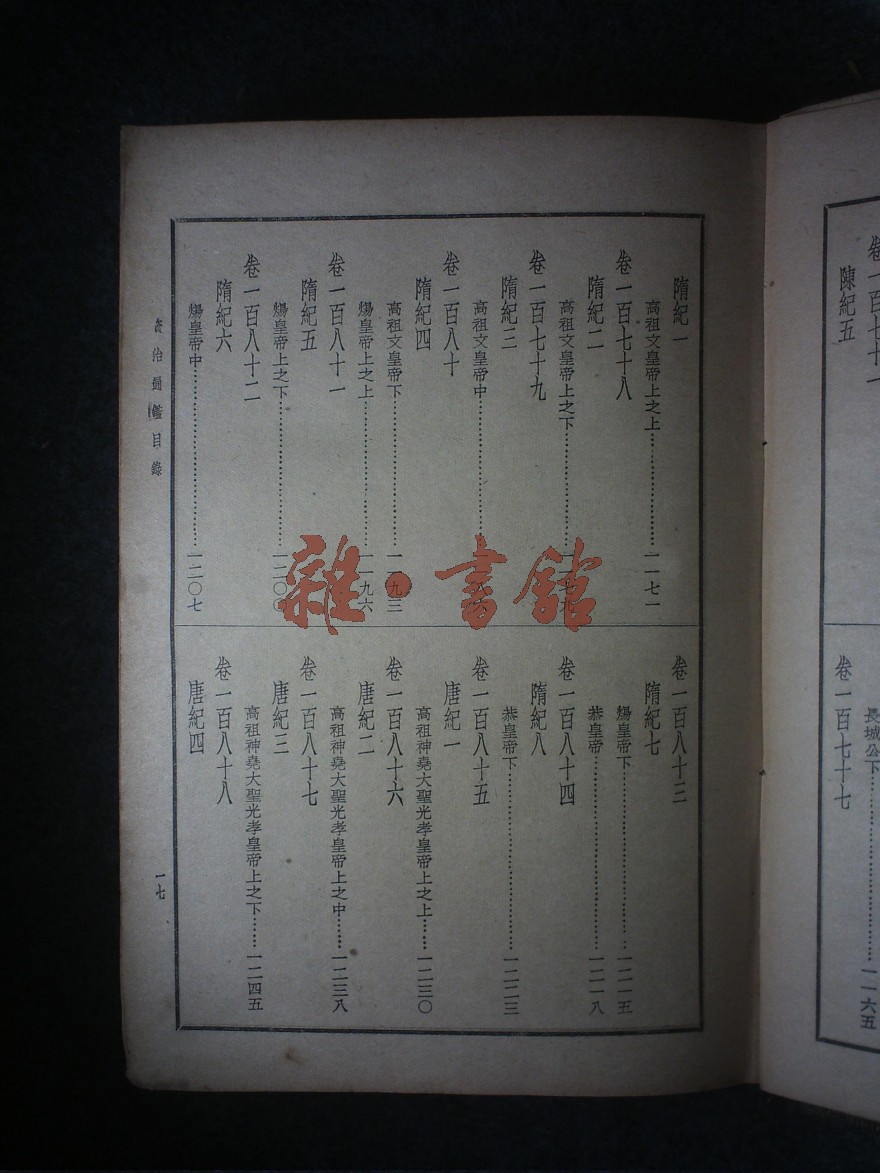 卷一百七十一
陳紀五
長城公下……一一六五
卷一百七十七
隋紀一
高祖文皇帝上之上……一一七一
卷一百七十八
隋紀二
高祖文皇帝上之下……
卷一百七十九
隋紀三
高祖文皇帝中……
卷一百八十
隋紀四
高祖文皇帝下……一一九三
煬皇帝上之上……一一九六
卷一百八十一
隋紀五
煬皇帝上之下……一二〇〇
卷一百八十二
隋紀六
煬皇帝中……一二〇七
卷一百八十三
隋紀七
煬皇帝下……一二一五
恭皇帝……一二一八
卷一百八十四
隋紀八
恭皇帝下……一二二三
卷一百八十五
唐紀一
高祖神堯大聖光孝皇帝上之上……一二三〇
卷一百八十六
唐紀二
高祖神堯大聖光孝皇帝上之中……一二三八
卷一百八十七
唐紀三
高祖神堯大聖光孝皇帝上之下……一二四五
卷一百八十八
唐紀四
資治通鑑目錄
一七
雜·書館